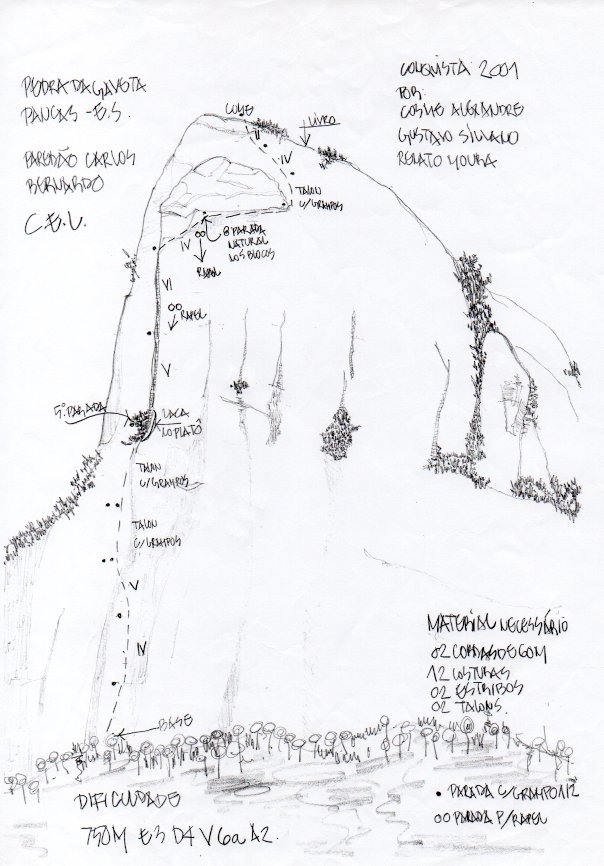 PEDRA DA GAVETA
PANCAS - E.S.
PAREDÃO CARLOS
BERNARDO
C.E.L.
CONQUISTA 2001
POR:
COSME ALEXANDRE
GUSTAVO SILVANO
RENATO MOURA
CUME
II
LIVRO
IV
TALON
C/GRAMPOS
8ª PARADA
NATURAL
NOS BLOCOS
IV
RAPEL
VI
RAPEL
V
5ª PARADA
LACA
NO PLATÔ
TALON
C/GRAMPOS
TALON
C/GRAMPOS
V
IV
BASE
MATERIAL NECESSÁRIO
02 CORDAS DE 60M
12 COSTURAS
02 ESTRIBOS
02 TALONS.
DIFICULDADE
750M E3 D4 V 6a A2.
PARADA C/GRAMPO 1/2
PARADA P/RAPEL